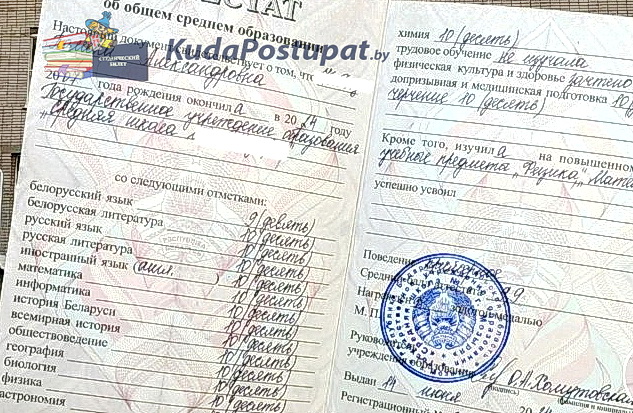 АТТЕСТАТ
об общем среднем образовании
Настоящий документ свидетельствует о том, что
СТУДЕНЧЕСКИЙ БИЛЕТ
KudaPostupat.by
Александровна
20 года рождения окончила в 2024 году
Государственное учреждение образования
"Средняя школа
со следующими отметками:
белорусский язык 9 (девять)
белорусская литература 10 (десять)
русский язык 10 (десять)
русская литература 10 (десять)
иностранный язык (англ. ) 10 (десять)
математика 10 (десять)
информатика 10 (десять)
история Беларуси 10 (десять)
всемирная история 10 (десять)
обществоведение 10 (десять)
география 10 (десять)
биология 10 (десять)
физика 10 (десять)
астрономия
химия 10 (десять)
трудовое обучение не изучала
физическая культура и здоровье зачтено
допризывная и медицинская подготовка 10
черчение 10 (десять)
Кроме того, изучила на повышенном
учебные предмета "Физика", "Мате
успешно усвоил
Поведение
Средний балл
Награжден золотой медалью
М. П.
Руководитель
учреждения образования Д.А.
Выдан 14 июня
Регистрационный